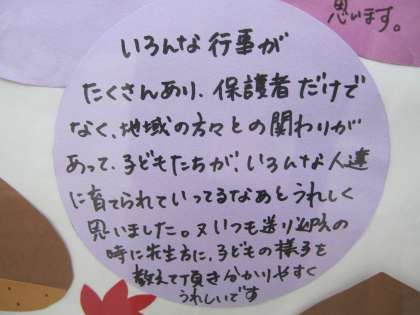 思います。
いろんな行事が
たくさんあり、保護者だけで
なく、地域の方々との関わりが
あって、子どもたちが、いろんな人達
に育てられていってるなあとうれしく
思いました。又いつも送り迎えの
時に先生方に、子どもの様子を
教えて頂き分かりやすく
うれしいです